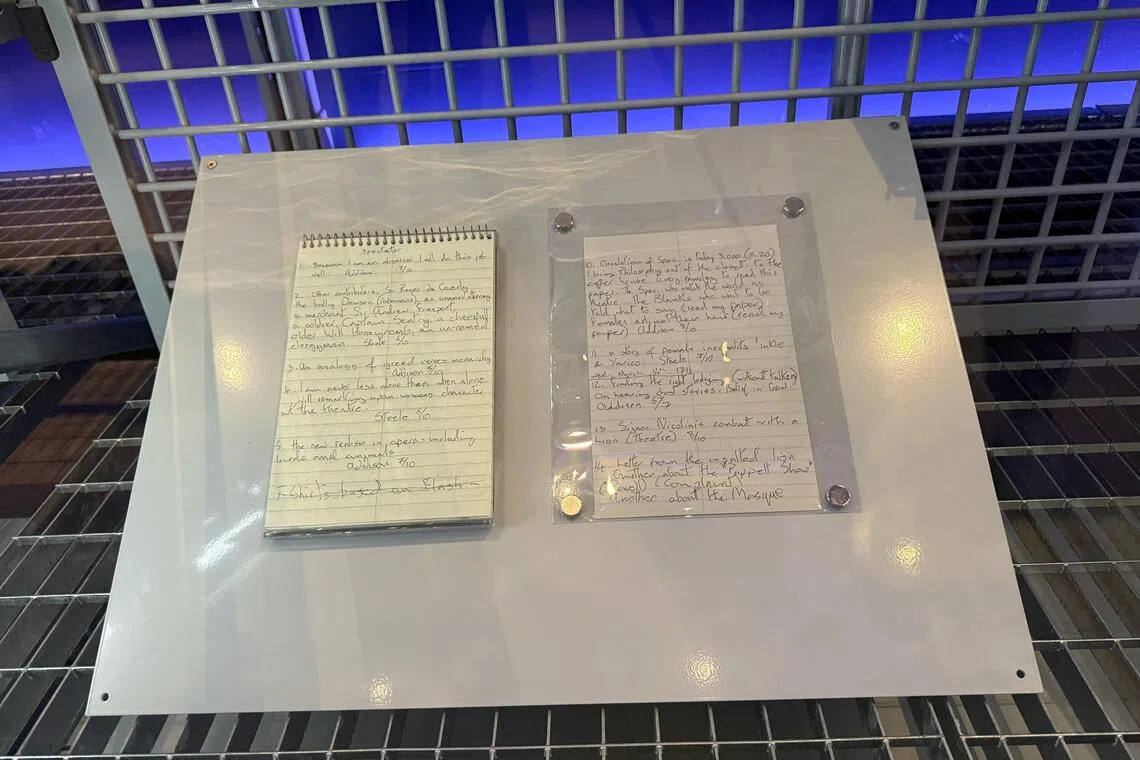 Spectator
1. Because I am an observer I will do this job
well Addison 7/10
2. Other contributors, Sir Roger de Coverly
the bully Dawson an unnamed
a merchant Sir Andrew Freeport,
a soldier, Captain Sentry, a cheerful
older Will Honeycomb, an un-named
clergyman. Steele 5/10
3. An analysis of greed verses monarchy
Addison 5/10
4. I am never less alone than when alone.
I will remark upon womens character
at the theatre.
Steele 6/10
5. the new realism in opera - including
birds and animals.
Addison 7/10
T-Shirts based on
10. Circulation of Spec. is today 3.000 (x 20)
I bring Philosophy out of the closet to the
coffee house. Every family to read this
paper. To Spec. who watch the world as
theatre. The Blanks who wait to be
told what to say (read my paper)
Females adjust their hair (read my
paper) Addison 8/10
11. a story of female 'Inkle
& Yarico. Steele 7/10
Wed. March 14th 1711
12. Finding the right lodgings (without talking)
On hearing ghost stories. Belief in God.
Addison 6/7
13. Signor Nicolinis combat with a
Lion (Theatre) 8/10
14. Letter from the insulted lion
Another about the "Puppett Show"
(Powell) (Complaint)
Another about the Masque